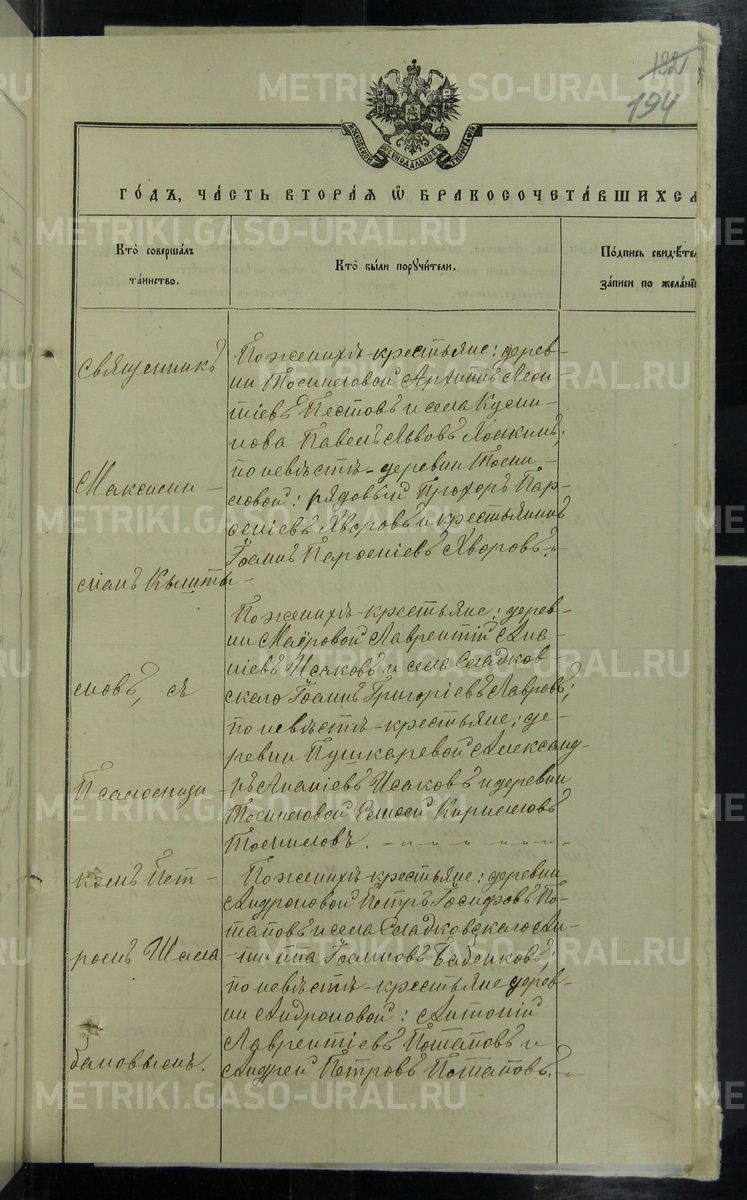 182
194
МОСКОВСКОЙ СѴНОДАЛЬНОЙ ТИПОГРАФІИ
ГО́ДЪ, ЧА́СТЬ ВТОРА́Я Ѡ БРАКОСОЧЕТА́ВШИХСЯ
Кто̀ соверша́лъ
та́инство.
Кто̀ бы́ли порꙋчи́тели.
По́дпись свидѣ́тел
за́писи по жела́нїю
Священникъ
Максими-
лianъ Кышты-
мовъ, съ
Псаломщи-
комъ Пет-
ромъ Шала-
бановымъ.
По женихѣ-крестьяне: дерев-
ни Томиловой Архипъ Леон-
тіевъ Пестовъ и села
Павелъ Львовъ
по невѣстѣ-деревни Томи-
ловой: рядовый Прохоръ Пар-
ѳеніевъ Яворовъ и крестьянинъ
Іоаннъ Парѳеніевъ Яворовъ.
По женихѣ-крестьяне: дерев-
ни Маѣровой Лаврентій Ана-
ніевъ Исаковъ и села Сладков-
скаго Іоаннъ Григоріевъ Лавровъ;
по невѣстѣ-крестьяне: де-
ревни Пушкаревой Александ-
ръ Ананіевъ Исаковъ и деревни
Томиловой Елисей Кирилловъ
Томиловъ.
По женихѣ-крестьяне: деревни
Андроновой Петръ Іосифовъ По-
таповъ и села Сладковскаго Ан-
типпа Іоанновъ Бабенковъ;
по невѣстѣ-крестьяне дерев-
ни Андроновой: Антоній
Лаврентіевъ Потаповъ и
Андрей Петровъ Потаповъ.
METRIKI.GASO-URAL.RU